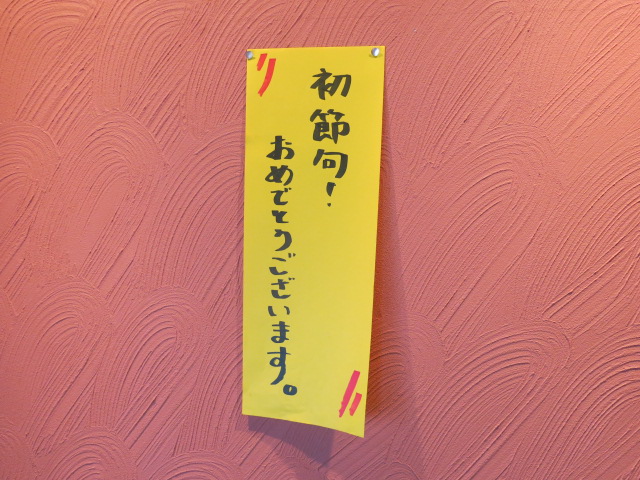 初節句!
おめでとうございます。